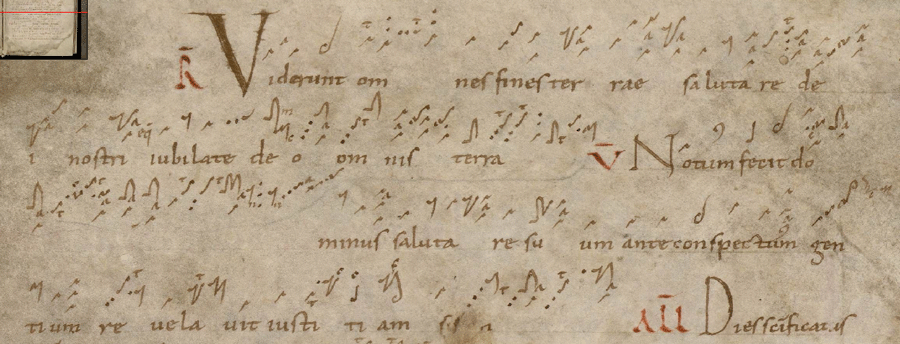 R Viderunt om nes fines ter rae saluta re de
i nostri iubilate de o om nis terra V Notum fecit do
minus saluta re su um ante conspectum gen
tium re vela vit iusti ti am s a All Dies scificat is